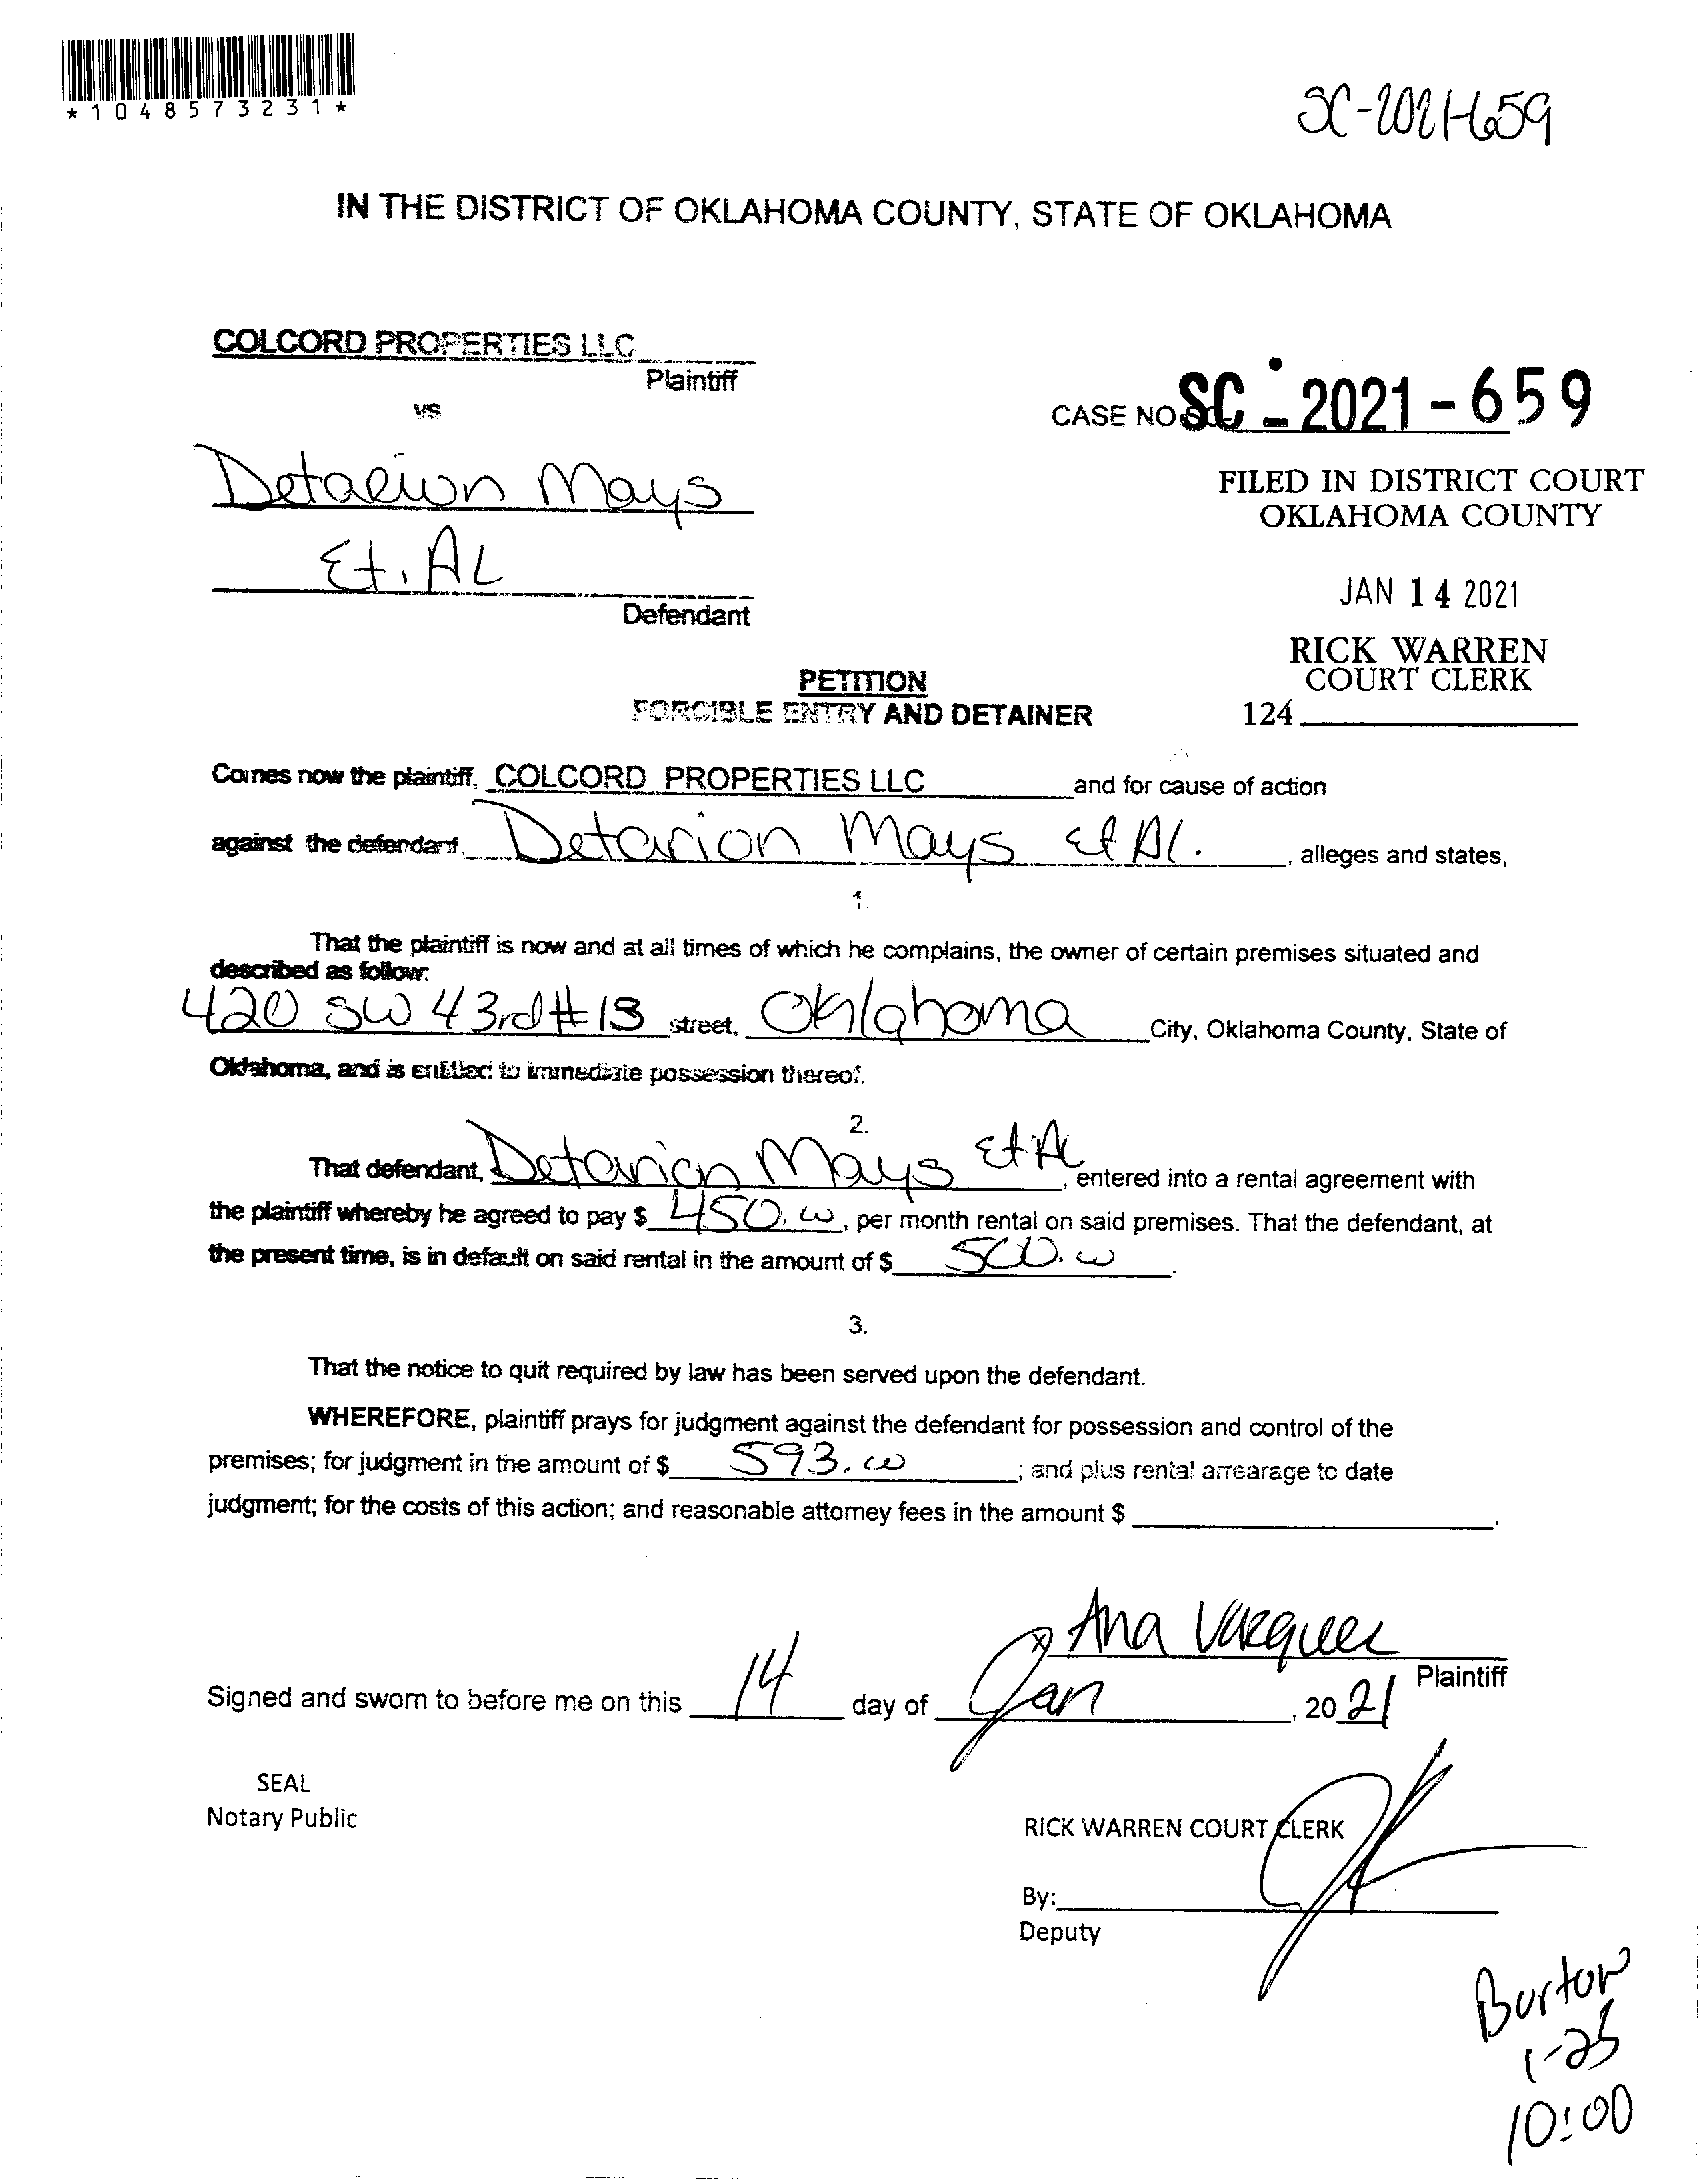 *1048573231*
SC-2021-659
IN THE DISTRICT OF OKLAHOMA COUNTY, STATE OF OKLAHOMA
COLCORD PROPERTIES LLC
Plaintiff
vs
CASE NO SC - 2021 - 659
Detarion Mays
FILED IN DISTRICT COURT
OKLAHOMA COUNTY
Et. AL
JAN 14 2021
Defendant
RICK WARREN
COURT CLERK
PETITION
124
FORCIBLE ENTRY AND DETAINER
Comes now the plaintiff, COLCORD PROPERTIES LLC and for cause of action
against the defendant, Detarion Mays et Al. , alleges and states,
1.
That the plaintiff is now and at all times of which he complains, the owner of certain premises situated and
described as follow:
420 SW 43rd # street, Oklahoma City, Oklahoma County, State of
Oklahoma, and is entitled to immediate possession thereof.
2.
That defendant, Detarion Mays Et Al , entered into a rental agreement with
the plaintiff whereby he agreed to pay $ 450.00 , per month rental on said premises. That the defendant, at
the present time, is in default on said rental in the amount of $ 500.00 .
3.
That the notice to quit required by law has been served upon the defendant.
WHEREFORE, plaintiff prays for judgment against the defendant for possession and control of the
premises; for judgment in the amount of $ 593.00 ; and plus rental arrearage to date
judgment; for the costs of this action; and reasonable attorney fees in the amount $ .
x Ana Vazquez
Plaintiff
Signed and sworn to before me on this 14 day of Jan , 20 21
SEAL
Notary Public
RICK WARREN COURT CLERK
By:
Deputy
Burton
1-25
10:00